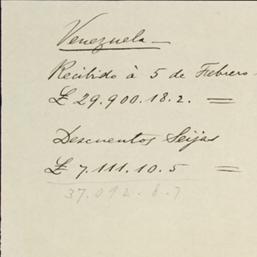 Venezuela —
Recibido à 5 de Febrero.
£ 29.900.18.2. =
Descuentos Seijas
£ 7.111.10.5 =
37.012.8.7